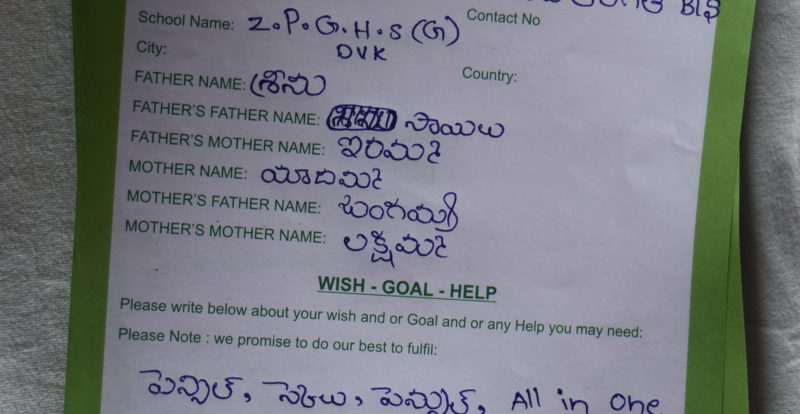 BIS
School Name: Z.P.G.H.S (G) Contact No
DVK
City: Country:
FATHER NAME: శ్రీను
FATHER'S FATHER NAME: సాయిలు
FATHER'S MOTHER NAME: ఇరమ్మ
MOTHER NAME: యాదమ్మ
MOTHER'S FATHER NAME: బంగయ్య
MOTHER'S MOTHER NAME: లక్ష్మిమ్మ
WISH - GOAL - HELP
Please write below about your wish and or Goal and or any Help you may need:
Please Note : we promise to do our best to fulfil:
పెన్సిల్, స్కేలు, పెన్సుల్, All in one